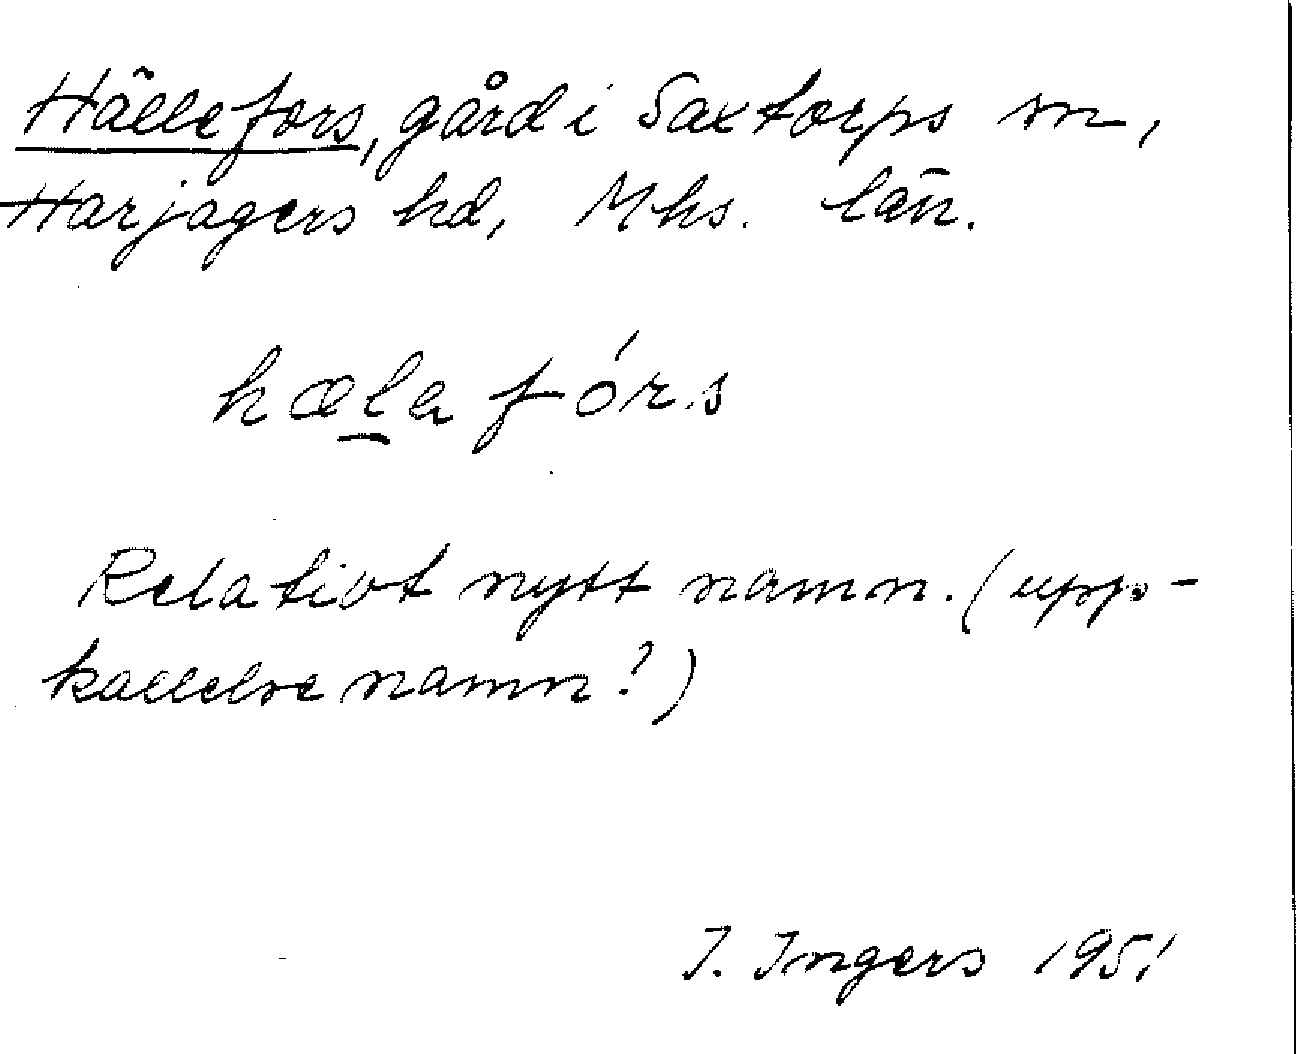 Hällefors, gård i Saxtorps sn,
Harjagers hd, Mhs. län.
hælafórs
Relativt nytt namn. (upp-
kallelsenamn?)
I. Ingers 1951